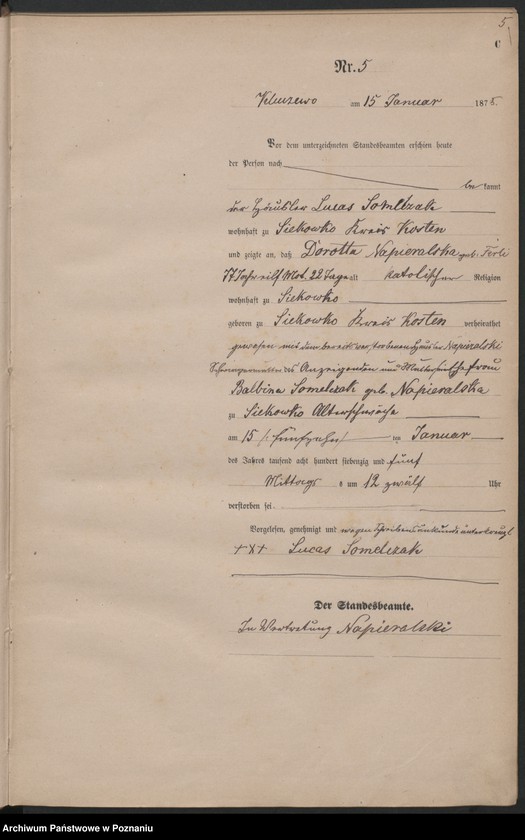 5
C
Nr. 5
am 15 Januar 1875.
Vor dem unterzeichneten Standesbeamten erschien heute
der Person nach
be kannt
der Häusler Lucas Somelczak
wohnhaft zu Siekowko Kreis Kosten
und zeigte an, daß Dorotta Napieralska geb.
77 Jahr eilf Mot. 22 Tage alt katolischer Religion
wohnhaft zu Siekowko
geboren zu Siekowko Kreis Kosten verheirathet
gewesen mit dem bereits verstorbenen Häusler Napieralski
Schwiegermutter des Anzeigenden und Mutter Ehefrau
Balbina Somelczak geb. Napieralska
zu Siekowko Altersschwäche
am 15 /: fünfzehn :/ ten Januar
des Jahres tausend acht hundert siebenzig und fünf
Mittags s um 12 zwölf Uhr
verstorben sei
Vorgelesen, genehmigt und wegen Schreibensunkunde unterkreuzt
+X+ Lucas Somelczak
Der Standesbeamte.
In Vertretung Napieralski
Archiwum Państwowe w Poznaniu